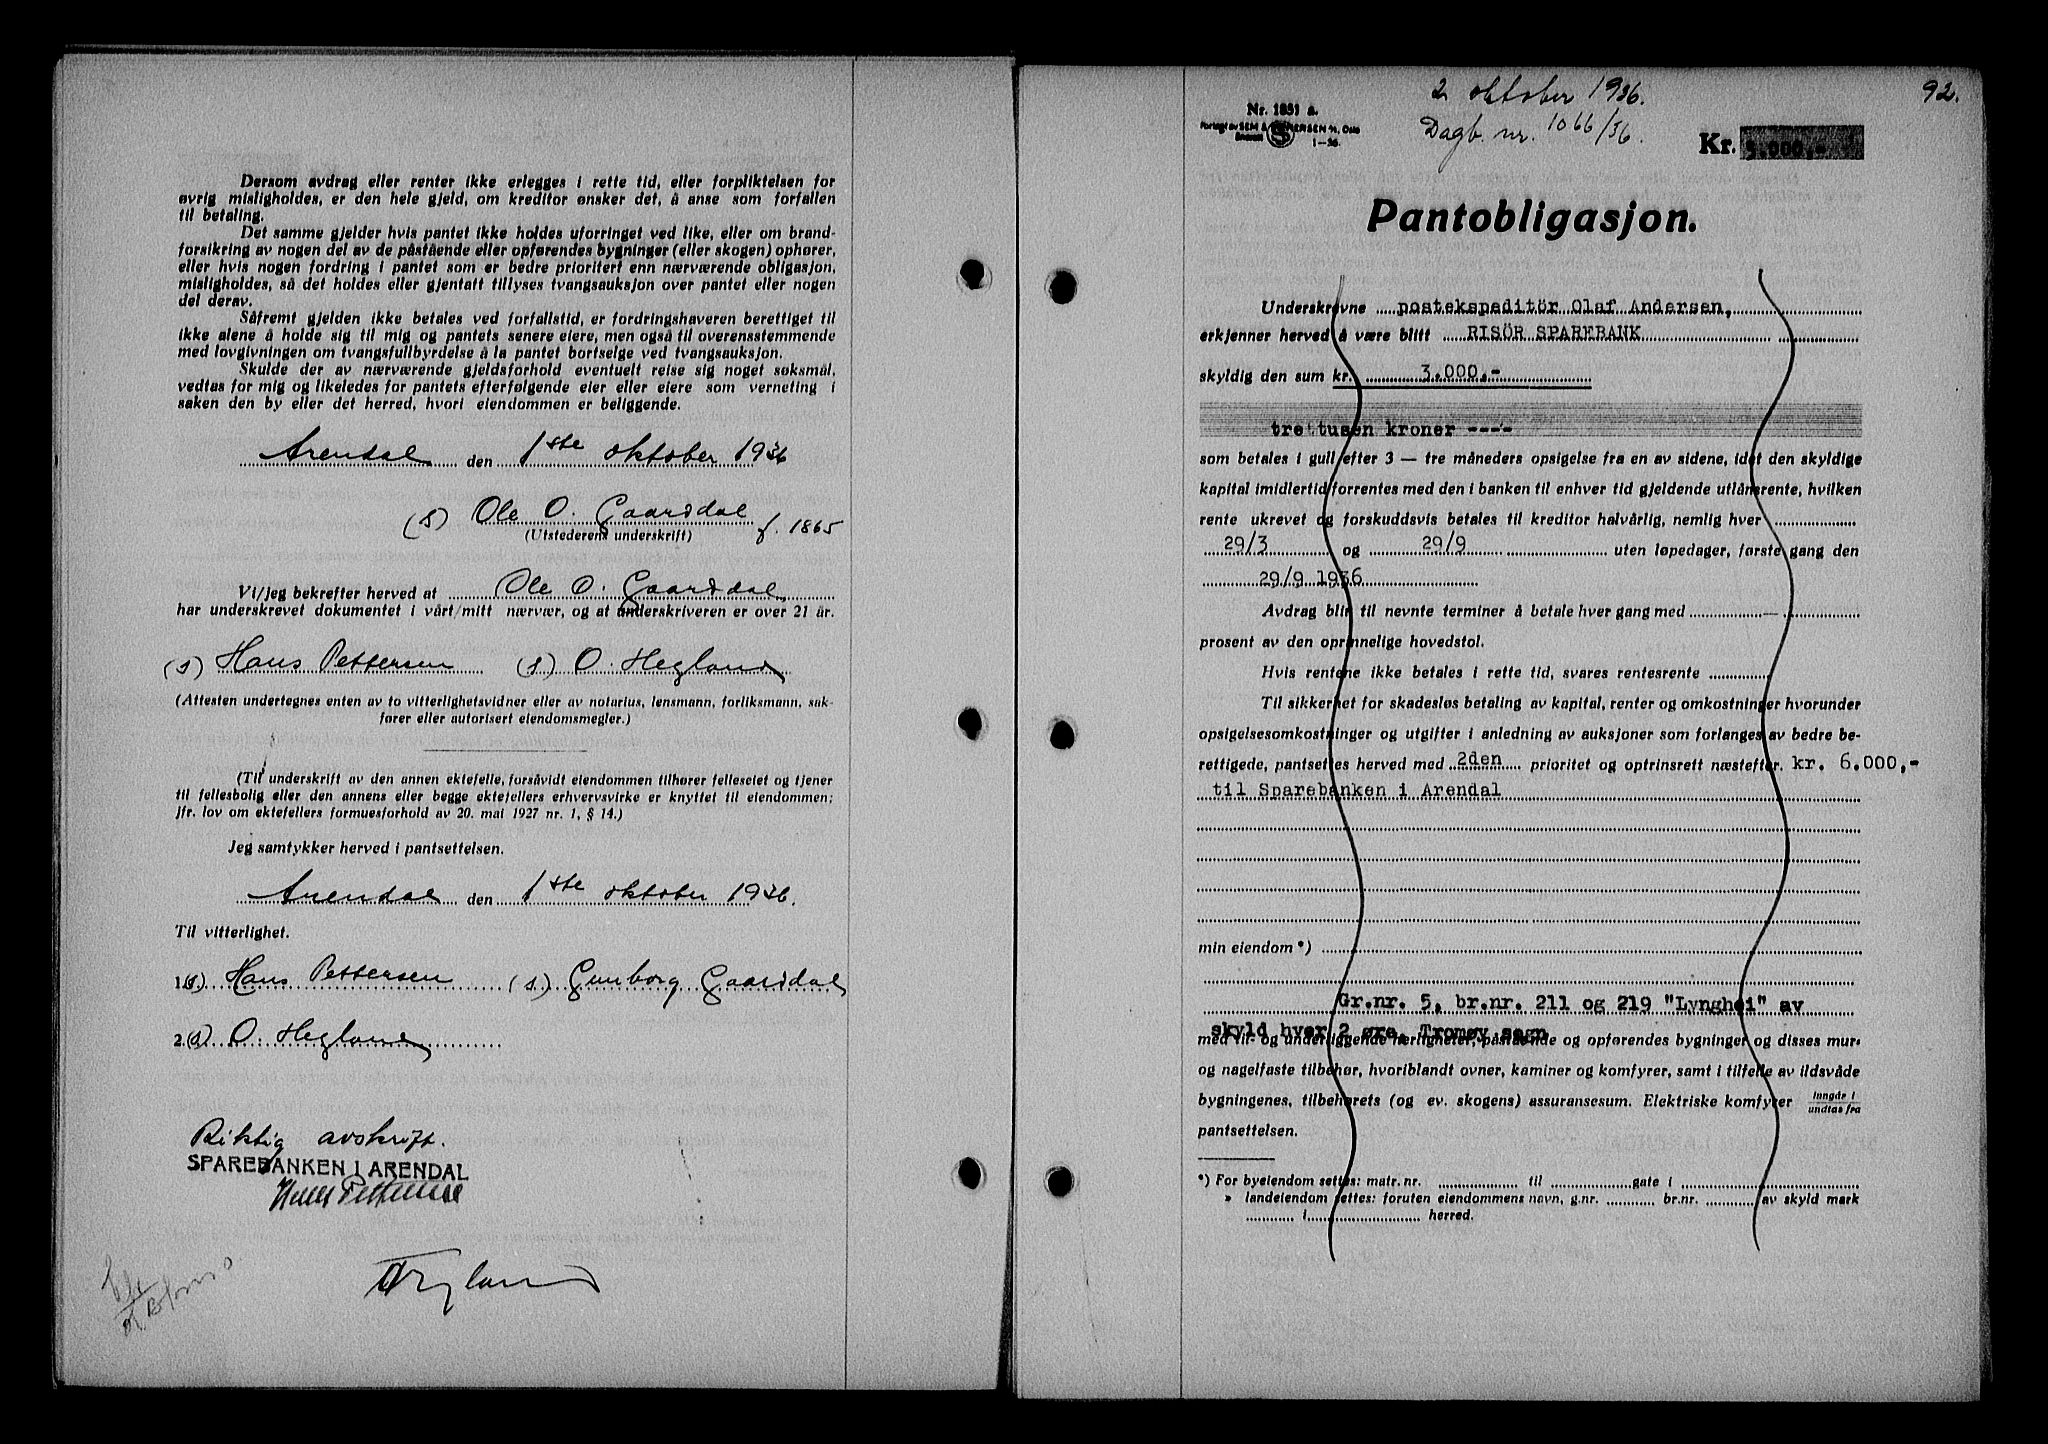 Dersom avdrag eller renter ikke erlegges i rette tid, eller forpliktelsen for
øvrig misligholdes, er den hele gjeld, om kreditor ønsker det, å anse som forfallen
til betaling.
Det samme gjelder hvis pantet ikke holdes uforringet ved like, eller om brand-
forsikring av nogen del av de påstående eller opførendes bygninger (eller skogen) ophører,
eller hvis nogen fordring i pantet som er bedre prioritert enn nærværende obligasjon,
misligholdes, så det holdes eller gjentatt tillyses tvangsauksjon over pantet eller nogen
del derav.
Såfremt gjelden ikke betales ved forfallstid, er fordringshaveren berettiget til
ikke alene å holde sig til mig og pantets senere eiere, men også til overensstemmende
med lovgivningen om tvangsfullbyrdelse å la pantet bortselge ved tvangsauksjon.
Skulde der av nærværende gjeldsforhold eventuelt reise sig noget søksmål,
vedtas for mig og likeledes for pantets efterfølgende eier eller eiere som verneting i
saken den by eller det herred, hvori eiendommen er beliggende.
Arendal den 1ste oktober 1936
(S) Ole O. Gaarddal f. 1865
(Utstederens underskrift)
Vi/jeg bekrefter herved at Ole O. Gaarddal
har underskrevet dokumentet i vårt/mitt nærvær, og at underskriveren er over 21 år.
(s) Hans Pettersen (s) O. Hegland
(Attesten undertegnes enten av to vitterlighetsvidner eller av notarius, lensmann, forliksmann, sak-
fører eller autorisert eiendomsmegler.)
(Til underskrift av den annen ektefelle, forsåvidt eiendommen tilhører felleseiet og tjener
til fellesbolig eller den annens eller begge ektefellers erhvervsvirke er knyttet til eiendommen;
jfr. lov om ektefellers formuesforhold av 20. mai 1927 nr. 1, § 14.)
Jeg samtykker herved i pantsettelsen.
Arendal den 1ste oktober 1936.
Til vitterlighet.
1. (s) Hans Pettersen (s) Gunborg Gaarddal
2. (s) O. Hegland
Riktig avskrift.
SPAREBANKEN I ARENDAL
Hans Pettersen
O Hegland
2 oktober 1936. 92.
Nr. 1851 a.
Dagb. nr. 1066/36.
1-36
Kr. 3.000,-
Pantobligasjon.
Underskrevne postekspeditör Olaf Andersen,
erkjenner herved å være blitt RISÖR SPAREBANK
skyldig den sum kr. 3.000,-
trettusen kroner ----
som betales i gull efter 3 — tre måneders opsigelse fra en av sidene, idet den skyldige
kapital imidlertid forrentes med den i banken til enhver tid gjeldende utlånsrente, hvilken
rente ukrevet og forskuddsvis betales til kreditor halvårlig, nemlig hver
29/3 og 29/9 uten løpedager, første gang den
29/9 1936
Avdrag blir til nevnte terminer å betale hver gang med —
prosent av den oprinnelige hovedstol.
Hvis rentene ikke betales i rette tid, svares rentesrente
Til sikkerhet for skadesløs betaling av kapital, renter og omkostninger hvorunder
opsigelsesomkostninger og utgifter i anledning av auksjoner som forlanges av bedre be-
rettigede, pantsettes herved med 2den prioritet og optrinsrett næstefter. kr. 6.000,-
til Sparebanken i Arendal
min eiendom *)
Gr.nr. 5, br.nr. 211 og 219 "Lynghei" av
skyld hver 2 øre, Tromøy sogn
med til- og underliggende herligheter, påstående og opførendes bygninger og disses mur-
og nagelfaste tilbehør, hvoriblandt ovner, kaminer og komfyrer, samt i tilfelle av ildsvåde
bygningenes, tilbehørets (og ev. skogens) assuransesum. Elektriske komfyrer inngår i / undtas fra
pantsettelsen.
*) For byeiendom settes: matr. nr. til gate i
» landeiendom settes: foruten eiendommens navn, g.nr. br.nr. av skyld mark
i herred.